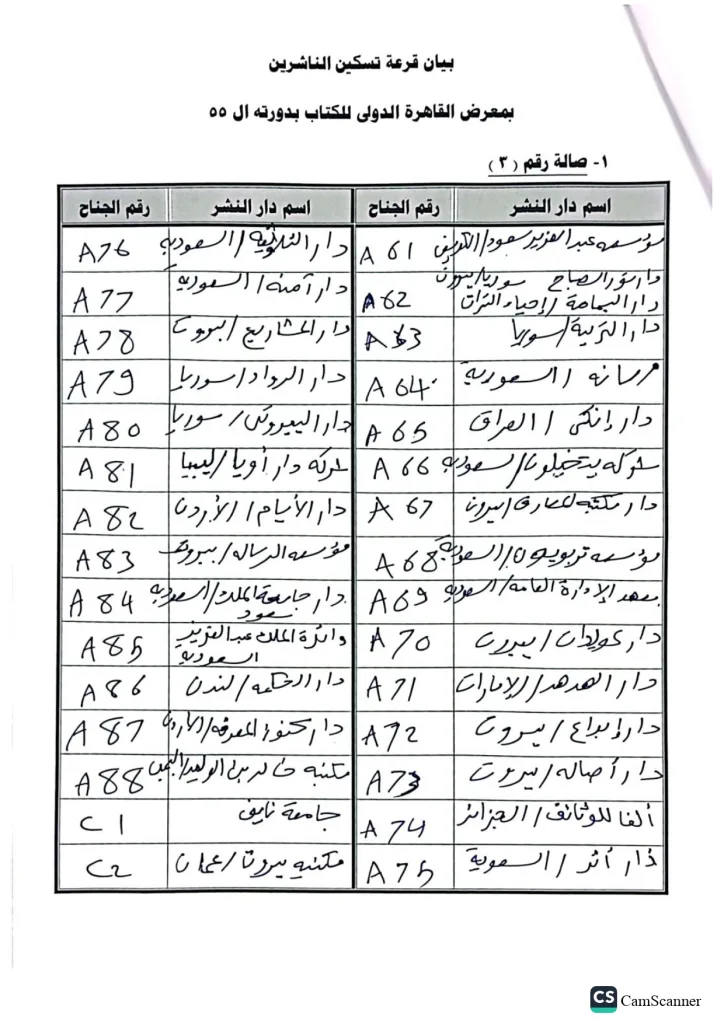 بيان قرعة تسكين الناشرين
بمعرض القاهرة الدولى للكتاب بدورته ال ٥٥
١- صالة رقم (٣)
اسم دار النشر رقم الجناح اسم دار النشر رقم الجناح
مؤسسة عبد العزيز سعود/الكويت A 61 دار الثلوثية/السعودية A76
دار نور الصباح سوريا/بيروت
دار اليمامة/إحياء التراث A62 دار آمنة/السعودية A77
دار التربية/سوريا A63 دار المشاريع/بيروت A78
مرسانه/السعودية A 64 دار الرواد/سوريا A79
دار إنكى/العراق A 65 دار اليعروبى/سوريا A80
شركه يتخيلون/السعودية A 66 شركه دار أويا/ليبيا A 81
دار مكتبه المعارف/بيروت A 67 دار الأيام/الأردن A 82
مؤسسه تربويون/السعودية A 68 مؤسسه الرساله/بيروت A83
معهد الإدارة العامه/السعودية A69 دار جامعة الملك/السعودية A 84
سعود
دار عويدات/بيروت A 70 دائرة الملك عبد العزيز A85
السعودية
دار الهدهد/الإمارات A71 دار الحكمه/لندن A86
دار إبداع/بيروت A72 دار كنوز المعرفه/الأردن A 87
دار أصاله/بيروت A73 مكتبه خالد بن الوليد/اليمن A88
ألفا للوثائق/الجزائر A 74 جامعة نايف C1
دار أثر/السعودية A 75 مكتبه بيروت/عمان C2
CS CamScanner